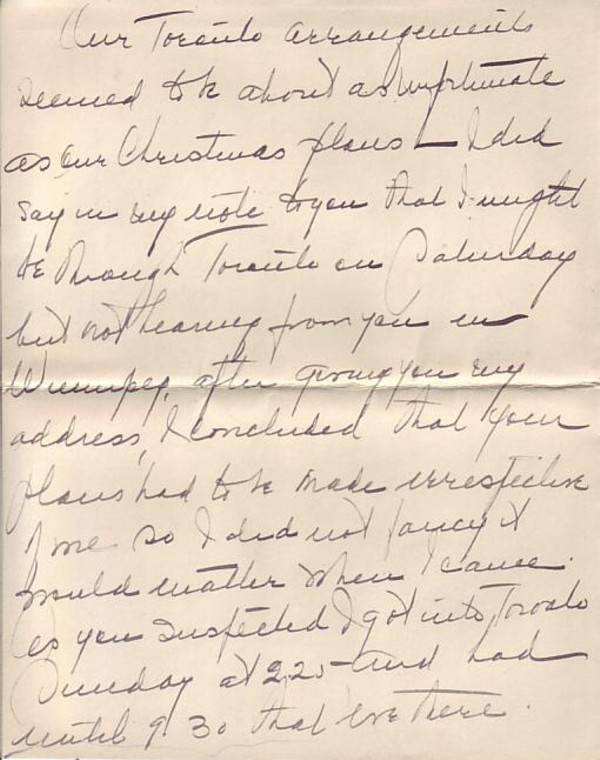 Our Toronto arrangements
seemed to be about as unfortunate
as our Christmas plans – I did
say in my note to you that I might
be through Toronto on Saturday
but not hearing from you in
Winnipeg, after giving you my
address, I concluded that your
plans had to be made irrespective
of me so I did not fancy it
would matter when I came.
As you suspected I got into Toronto
Sunday at 2.20 – and had
until 9.30 that eve there.